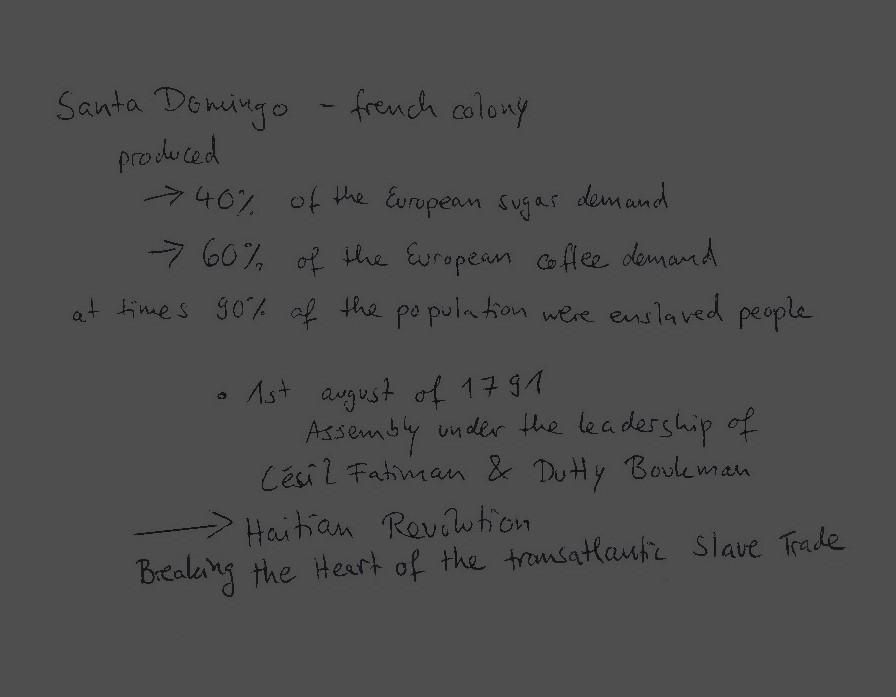 Santa Domingo - french colony
produced
→ 40% of the European sugar demand
→ 60% of the European coffee demand
at times 90% of the population were enslaved people
• 1st august of 1791
Assembly under the leadership of
Césil Fatiman & Dutty Boukman
→ Haitian Revolution
Breaking the Heart of the transatlantic Slave Trade